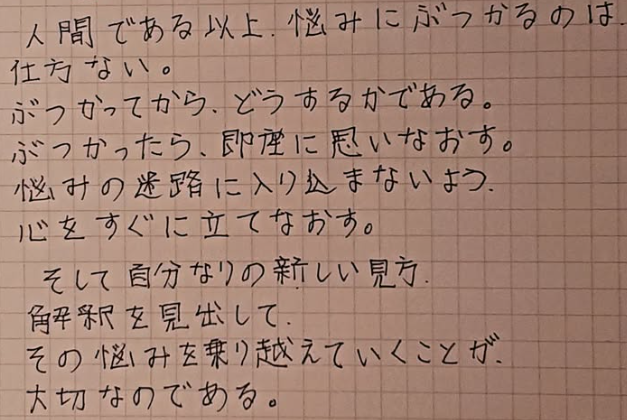 人間である以上、悩みにぶつかるのは、
仕方ない。
ぶつかってから、どうするかである。
ぶつかったら、即座に思いなおす。
悩みの迷路に入り込まないよう、
心をすぐに立てなおす。
そして自分なりの新しい見方、
解釈を見出して、
その悩みを乗り越えていくことが、
大切なのである。